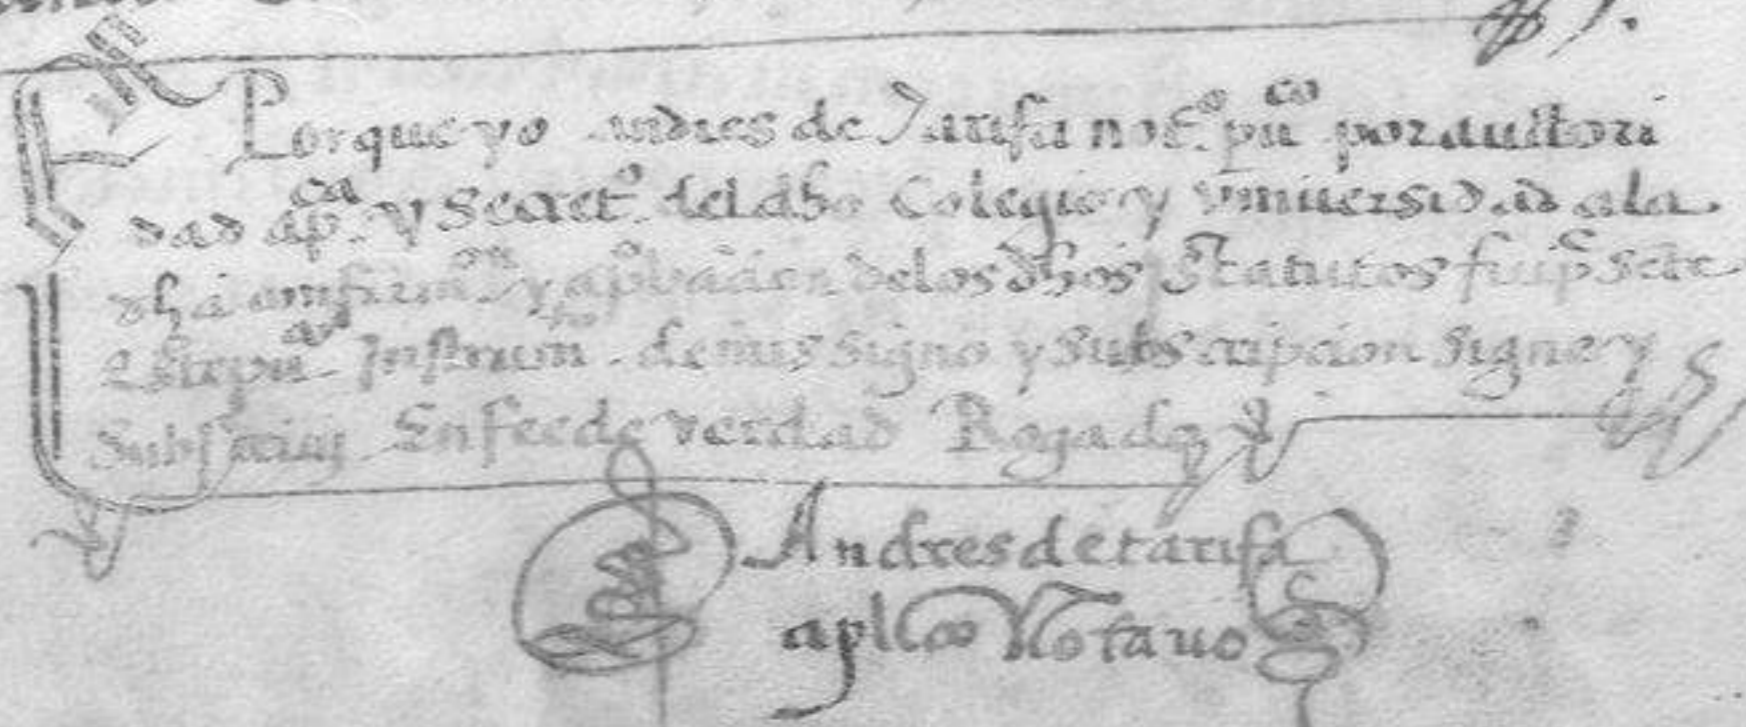 E Porque yo andres de Tarifa not.º pu.co por auctori
dad ap.ca y Secret.º del dho Colegio y Vniuersidad a la
dha confirmaon y aprobacion de los dhos Statutos fui pnte
este pu.co Instrum.to de mi signo y subscripcion signe y
Subscriui En fee de verdad Rogado
Andres de tarifa
aplico Notario